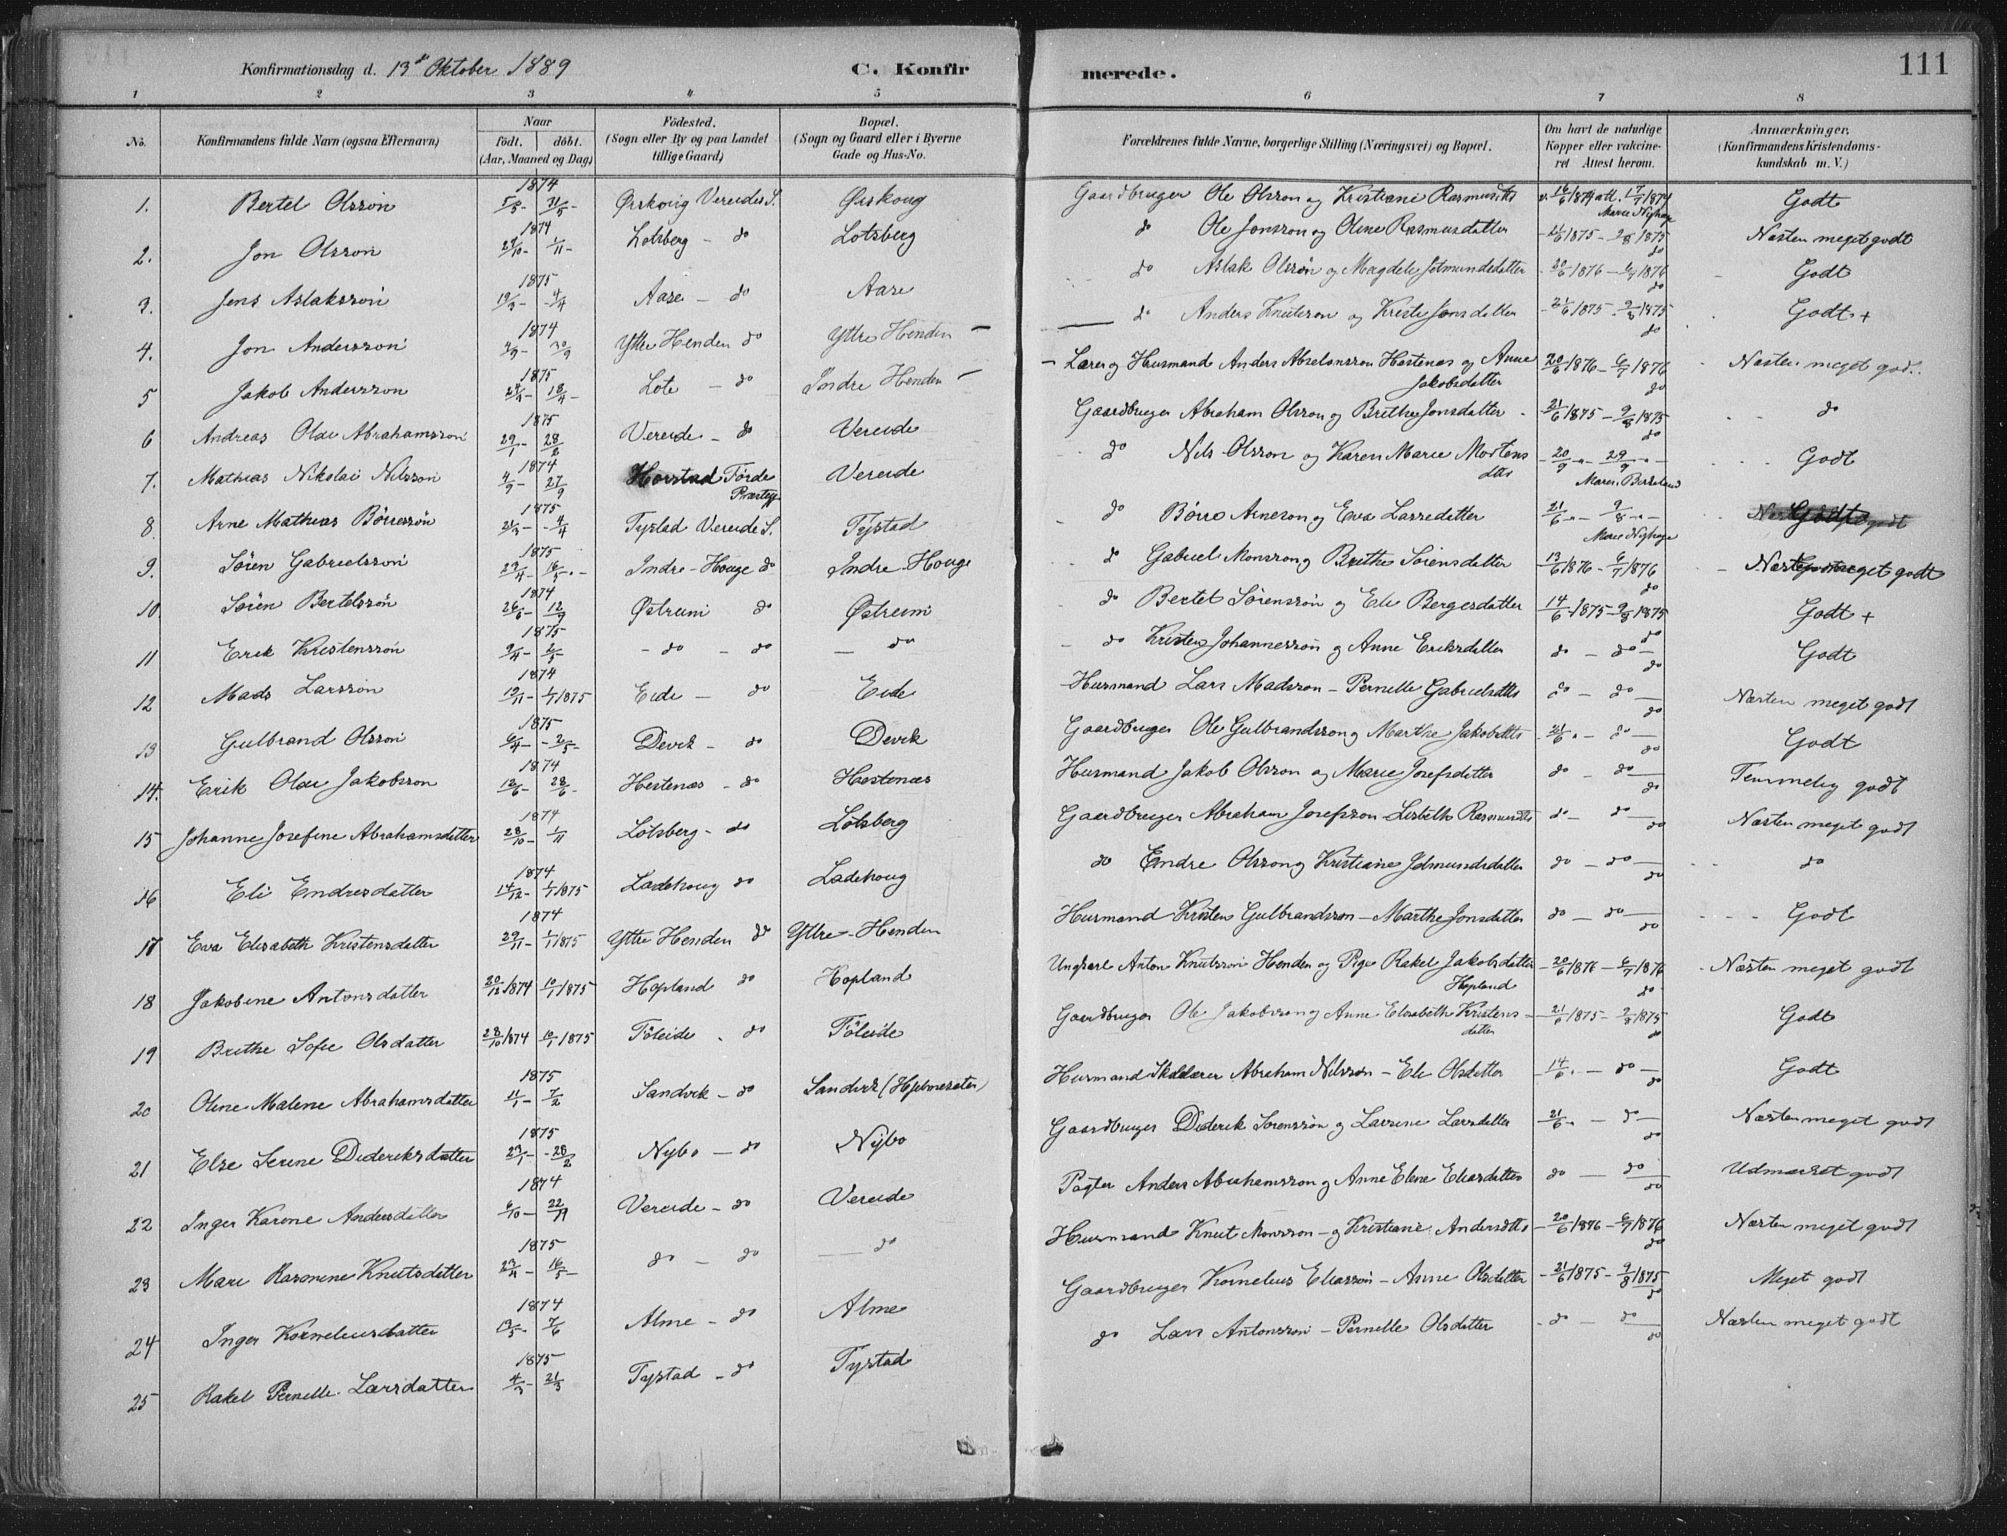 Konfirmationsdag d. 13de Oktober 1889 C. Konfir merede. 111
1 2 3 4 5 6 7 8
No. Konfirmandens fulde Navn (ogsaa Efternavn) Naar født. døbt. (Aar, Maaned og Dag) Fødested. (Sogn eller By og paa Landet tillige Gaard) Bopæl. (Sogn og Gaard eller i Byerne Gade og Hus-No. Forældrenes fulde Navne, borgerlige Stilling (Næringsvei) og Bopæl. Om havt de naturlige Kopper eller vakcineret Attest herom. Anmærkninger. (Konfirmandens Kristendomskundskab m. V.)
1874
1. Bertel Olssøn 31/5 - Ørskoug Vereides S. Ørskoug Gaardbruger Ole Olsson og Kristiane Rasmusdtt v. 16/6 1874 att. 17/7 1874 Godt
Marie Nyhage
1874
2. Jon Olsson 29/10 - 1/11 - Lotsberg - do Lotsberg do Ole Jonsson og Oline Rasmusdatter - 21/6 1875 - 9/8 1875 Næsten meget godt
do
1875
3. Jens Aslakssøn 19/3 - 4/4 Aase - do Aase do Aslak Olsson og Magdele Jetmundsdatter - 20/6 1876 - 6/7 1876 Godt
do
1874
4. Jon Anderssøn 4/9 - 20/9 Yttre Henden do Yttre Henden - do Anders Knutsson og Kristi Jonsdatter - 21/6 1875 - 9/8 1875 Godt +
do
1875
5 Jakob Andersson 18/4 - Lote - do Indre Henden - - Lærer og Husmand Anders Absalonsson Hestenæs og Anne Jakobsdatter 20/6 1876 - 6/7 1876 Næsten meget god.
do
1875
6 Andreas Olai Abrahamssøn 29/1 - 28/2 Vereide - do Vereide Gaardbruger Abraham Olsson og Brithe Jonsdatter - 21/6 1875 - 9/8 1875 do
do
1874
7. Mathias Nikolai Nilssøn 4/9 - 27/9 Hovstad Førde Præstegj. Vereide do Nils Olsson og Karen Marie Mortensdtt - 20/9 - 29/9 - Godt
1875
8 Arne Mathias Børressøn 4/4 Tystad Vereide S. Tystad do Børre Arneson og Eva Larsdatter 21/6 - 9/8 - Godt
Marie Nyhage
1875
9. Søren Gabrielssøn 29/4 - 16/5 - Indre-Houge do Indre-Houge do Gabriel Monsson og Brithe Sørensdatter - 13/6 1876 - 6/7 1876 - Næsten meget godt
do
1874
10. Søren Bertelssøn 12/9 Østrem do Østrem do Bertel Sørenssøn og Eli Bergesdatter 14/6 1875 - 9/8 1875 Godt +
do
1875
11 Erik Kristenssøn 9/4 - 2/5 - - do - do - do - do Kristen Johannesson og Anne Eriksdatter do - do - Godt
do
1874
12 Mads Larssøn 1/1 1875 Eide - do Eide Husmand Lars Madsson - Pernelle Gabrielsdtt do - do - Næsten meget godt
do
1875
13 Gulbrand Olssøn 6/4 - 2/5 - Devik - do Devik Gaardbruger Ole Gulbrandsson og Marthe Jakobsdtt - 21/6 - do - Godt
do
1874
14. Erik Olai Jakobsson 12/6 - 28/6 - Hestenæs - do Hestenæs Husmand Jakob Olsson og Marie Josefsdatter do - do - Temmelig godt
do
1874
15 Johanne Josefine Abrahamsdatter 28/10 - 1/11 Lotsberg - do Lotsberg Gaardbruger Abraham Josefsson - Lisbeth Rasmusdtt do - do Næsten meget godt
do
1874
16 Eli Endresdatter 14/12 - 1/1 1875 Ladehoug do Ladehoug do Endre Olsson og Kristiane Jetmundsdatter do - do - do
do
1874
17 Eva Elisabeth Kristensdatter 29/11 - 1/1 1875 Yttre Henden do Yttre-Henden Husmand Kristen Gulbrandsson - Marthe Jonsdatter do - do - Godt
do
18 Jakobine Antonsdatter 20/12 1874 10/1 1875 Hopland do Hopland Ungkarl Anton Knutsson Henden og Pige Rakel Jakobsdatter Hopland - 20/6 1876 - 6/7 1876 Næsten meget godt
do
19 Brithe Sofie Olsdatter 28/10 1874 10/1 1875 Føleide - do Føleide Gaardbruger Ole Jakobsson og Anne Elisabeth Kristensdatter - 21/6 1875 - 9/8 1875 Godt
do
1875
20 Oline Malene Abrahamsdatter 11/1 - 7/2 Sandvik - do Sandvik (Hjelmesæter) Husmand Skolelærer Abraham Nilsson - Eli Olsdatter - 14/6 - do - Godt
do
1875
21 Else Serine Dideriksdatter 23/1 - 28/2 Nybo - do Nybo Gaardbruger Diderik Sørenssøn og Larsine Larsdatter 21/6 - do - Næsten meget godt
do
1874
22 Inger Karine Andersdatter 6/10 - Vereide - do Vereide Pagter Anders Abrahamsson og Anne Elene Eliasdatter do - do - Udmærket godt
do
1875
23 Mari Rasmine Knutsdatter 23/4 - 16/5 - do - do - do Husmand Knut Monsson - og Kristiane Andersdtt - 20/6 1876 - 6/7 1876 Næsten meget godt
do
1874
24 Inger Korneliusdatter 13/5 - 7/6 Alme - do Alme Gaardbruger Kornelius Eliassøn - Anne Olsdatter - 21/6 1875 - 9/8 1875 Meget godt
do
1875
25 Rakel Pernelle Larsdatter 4/3 - 21/3 Tystad - do Tystad do Lars Antonssøn - Pernelle Olsdatter - do - do Næsten meget godt
do